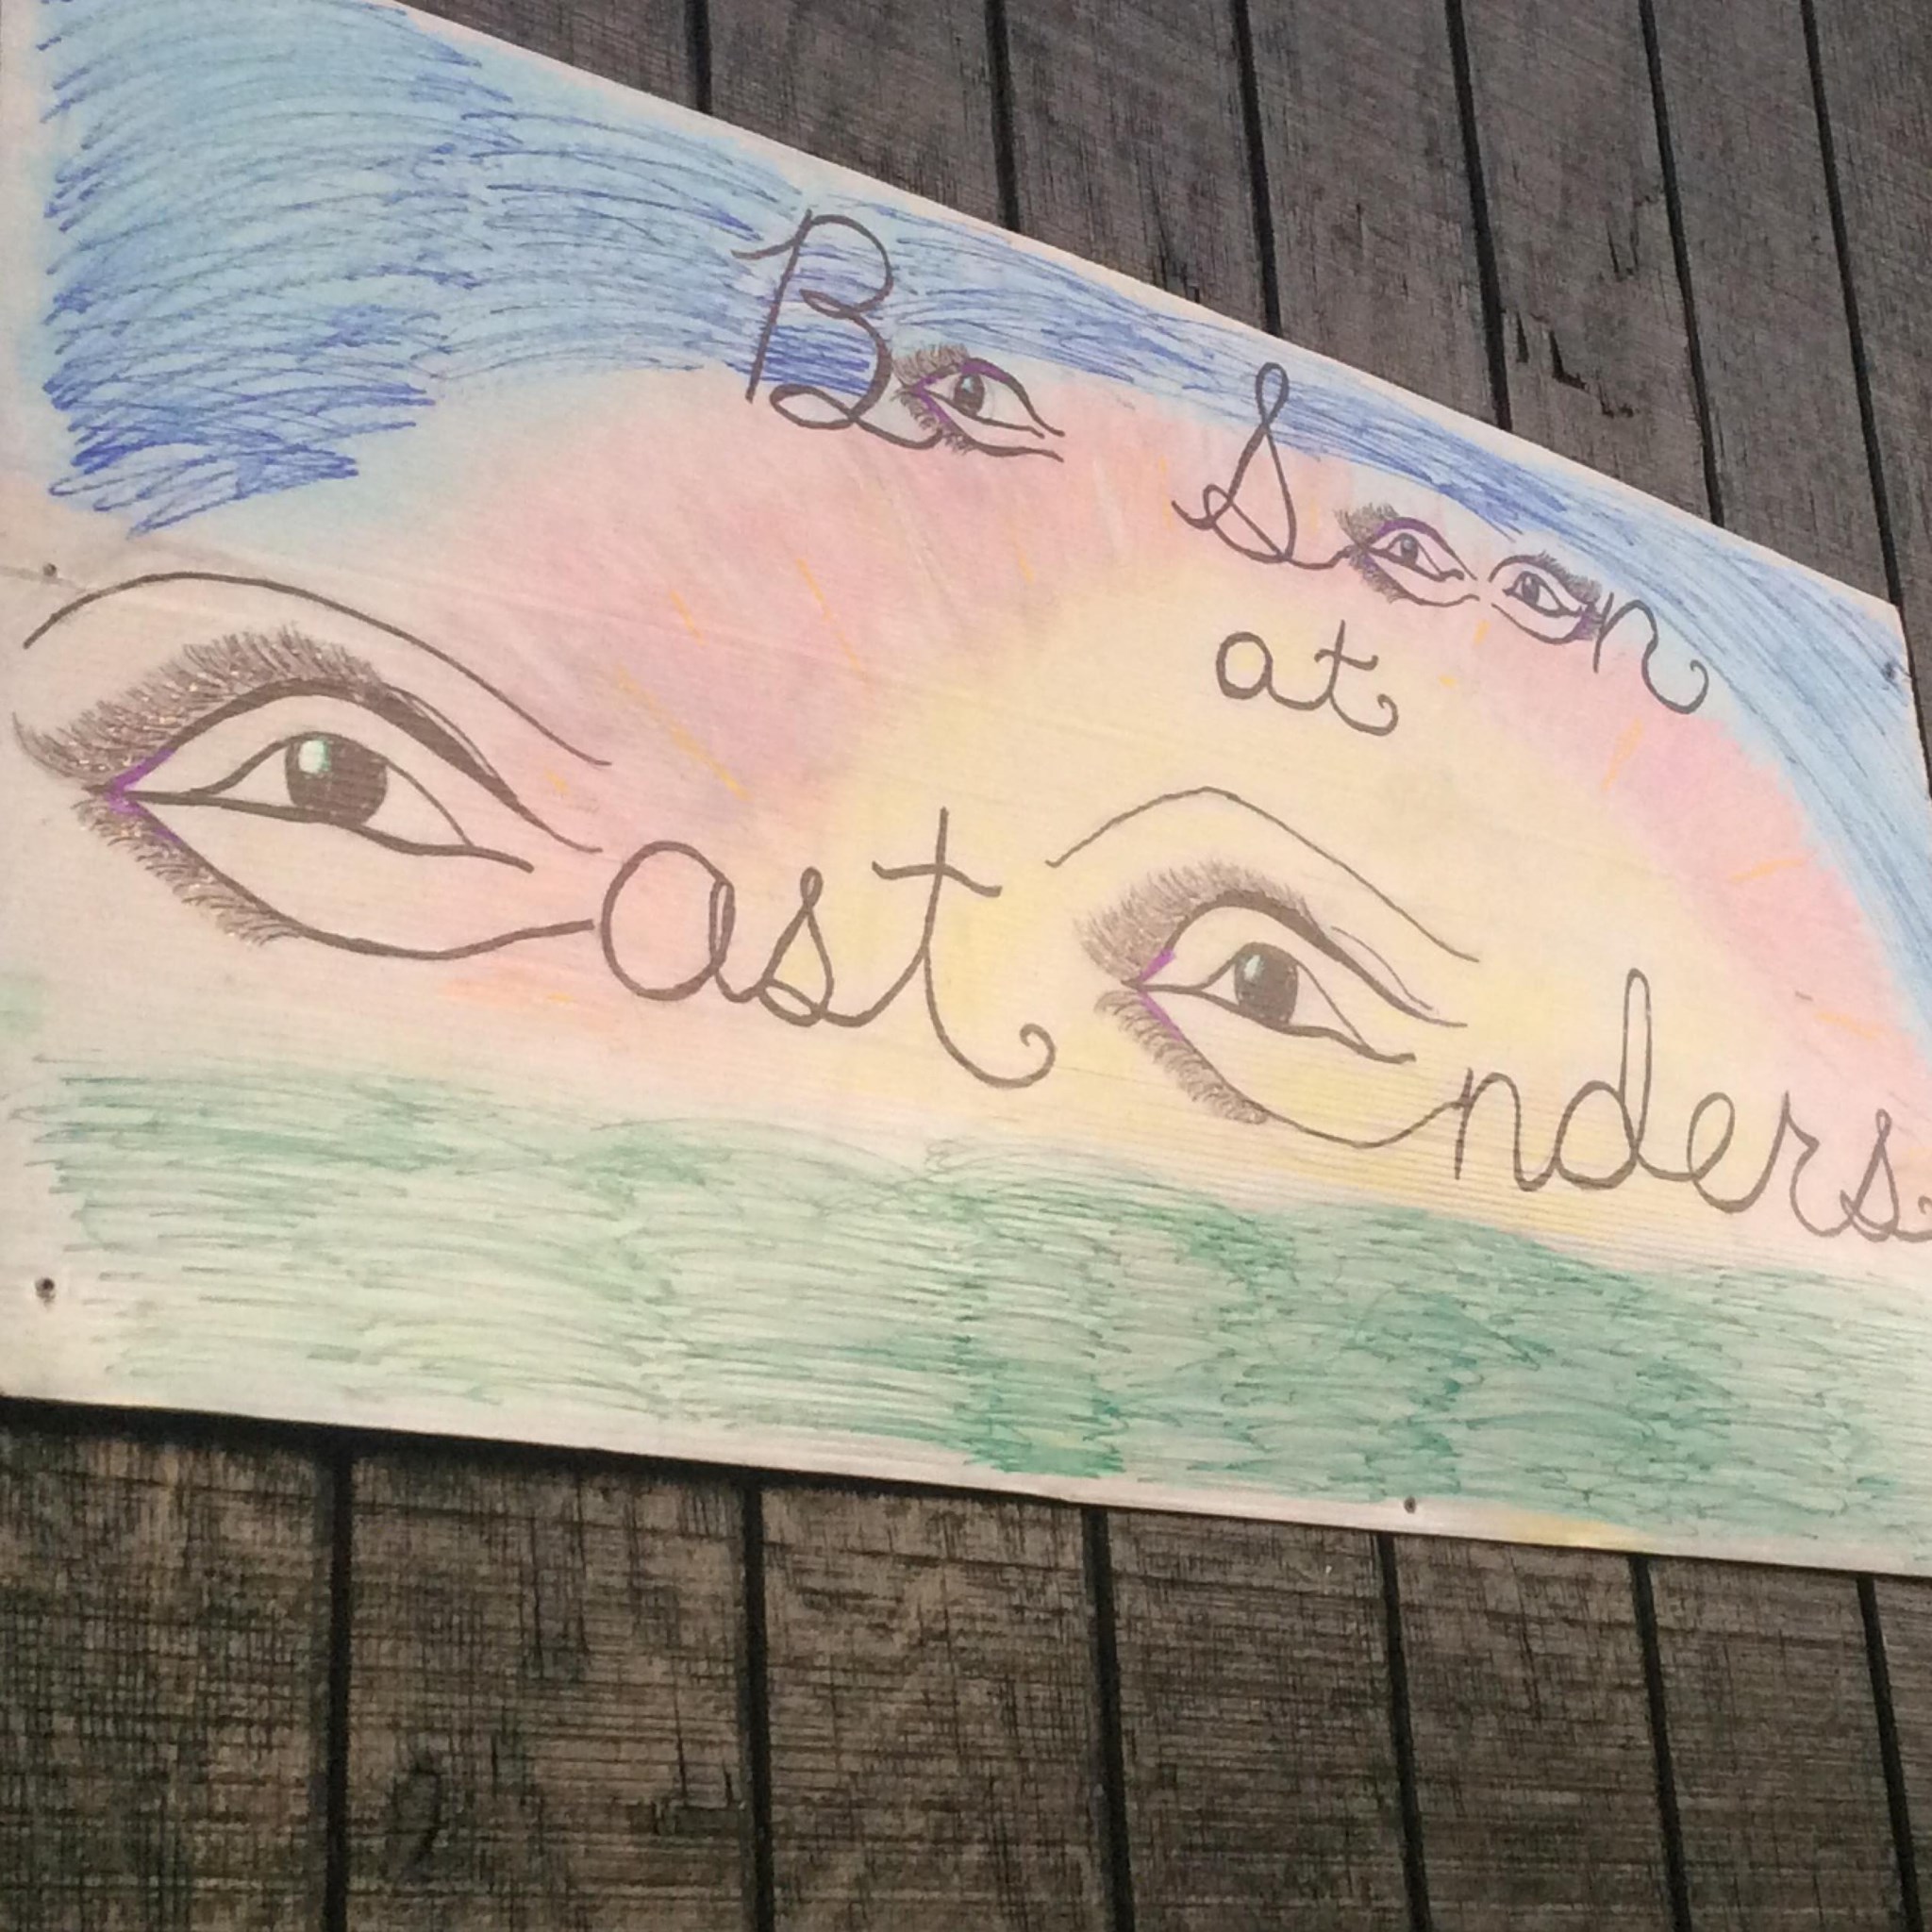 Be Seen
at
East Enders